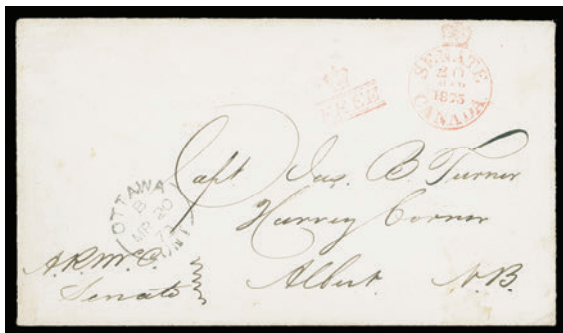 SENATE
20
MAR
1875
CANADA
FREE
OTTAWA
B
MR 20
75
ONT
Capt Jas. B. Turner
Harvey Corner
Albert N.B.
A.R.McC.
Senate